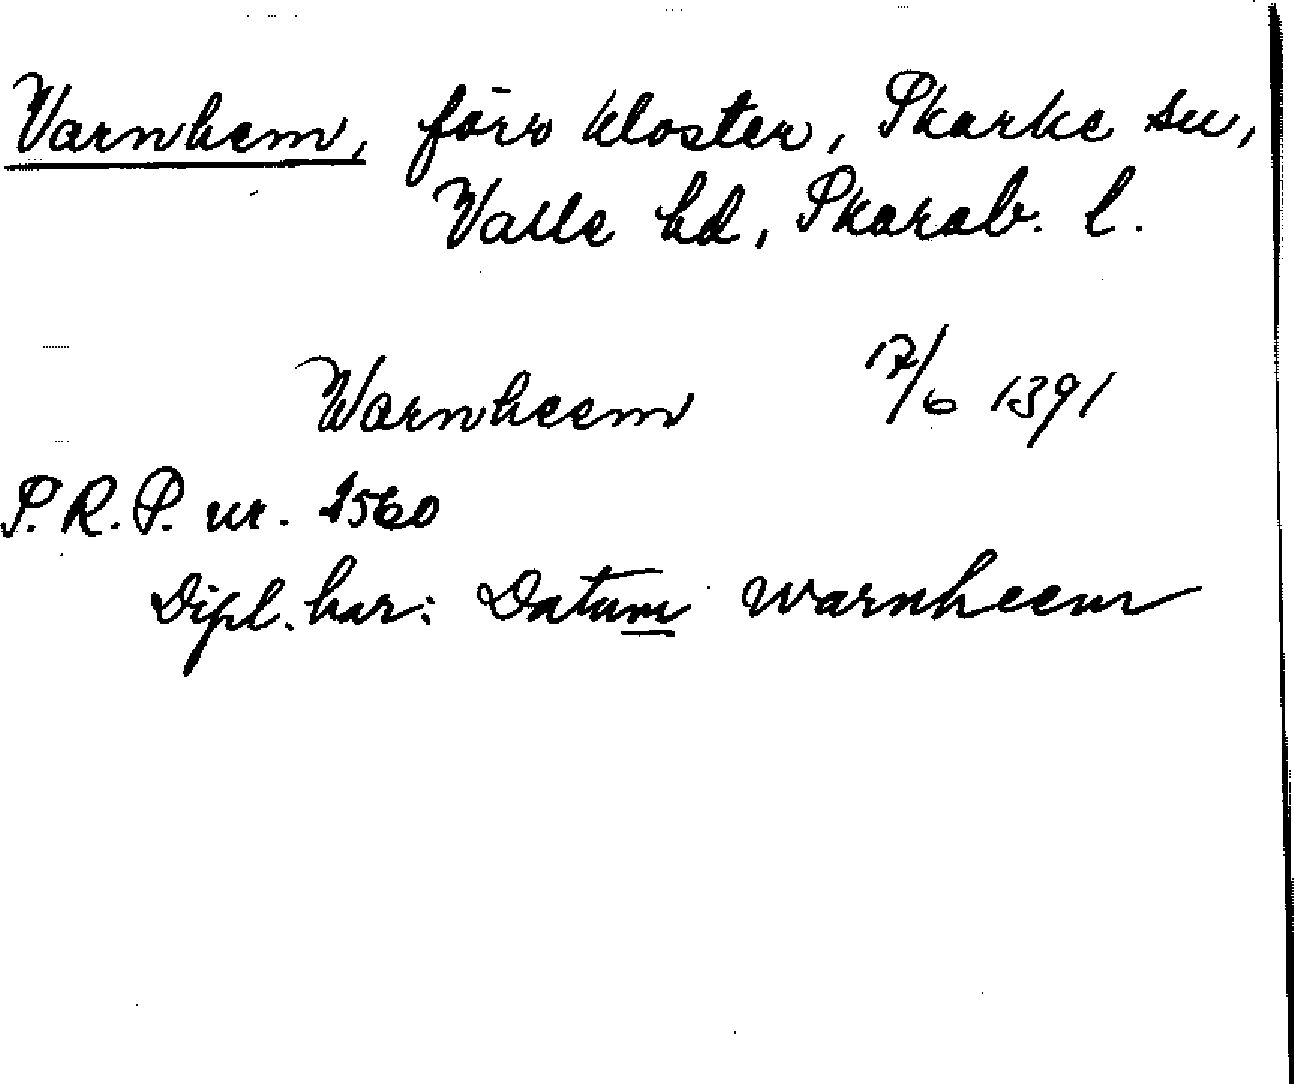 Varnhem, förv kloster, Skarke sn,
Valle hd, Skarab. l.
Warnheem 7/6 1391
S.R.P. nr. 2560
Dipl. har: Datum Warnheem